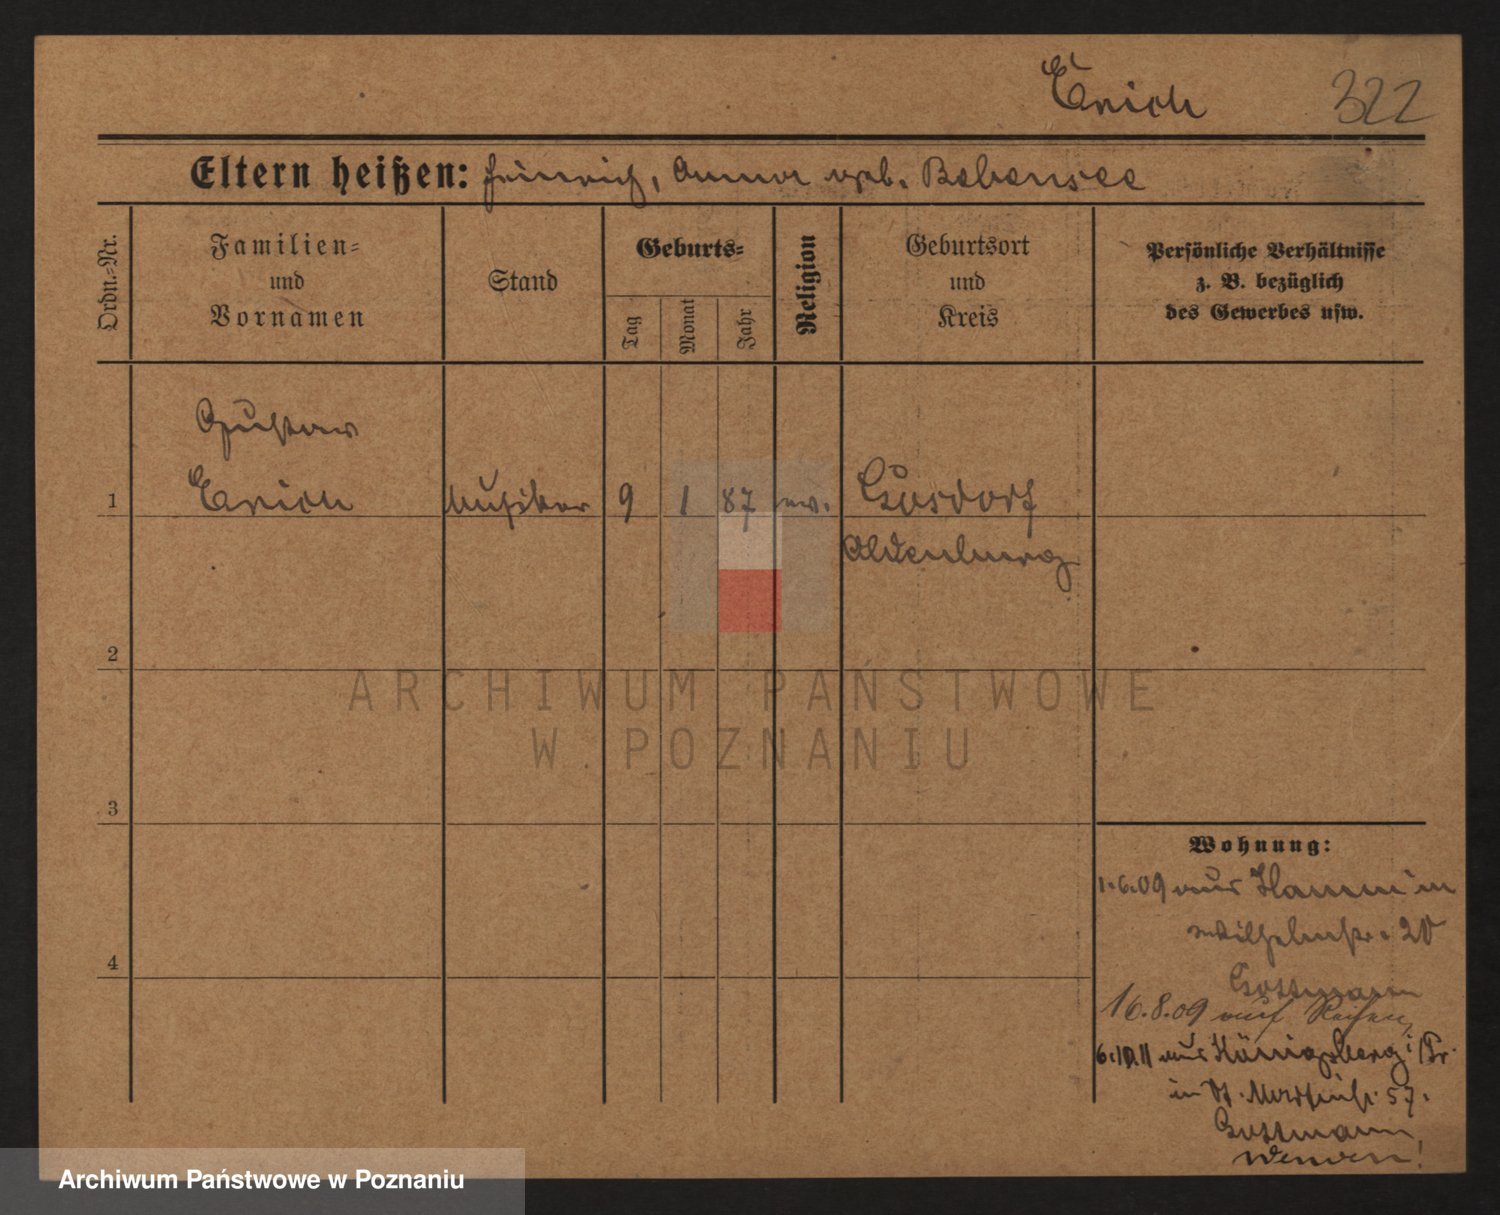 Erich 322
Eltern heißen: Heinrich, Anna geb. Bebensee
Ordn.-Nr.
Familien-
und
Vornamen
Stand
Geburts-
Tag
Monat
Jahr
Religion
Geburtsort
und
Kreis
Persönliche Verhältnisse
z. B. bezüglich
des Gewerbes usw.
Gustav
1 Erich Musiker 9 1 87 ev. Gosdorf
Oldenburg
2
3
4
Wohnung:
1.6.09 aus Hamm in
Wilhelmstr. 20
Gossmann
16.8.09 auf Reisen
6.10.11 aus Königsberg i/Pr.
in St. Martinstr. 57.
Gossmann
Wenden!
ARCHIWUM PAŃSTWOWE
W POZNANIU
Archiwum Państwowe w Poznaniu